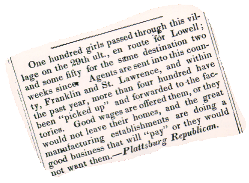 One hundred girls passed through this vil-
lage on the 29th ult., en route for Lowell;
and some fifty for the same destination two
weeks since. Agents are sent into this coun-
ty, Franklin and St. Lawrence, and within
the past year, more than four hundred have
been "picked up" and forwarded to the fac-
tories. Good wages are offered them, or they
would not leave their homes, and the great
manufacturing establishments are doing a
good business that will "pay" or they would
not want them.—Plattsburg Republican.